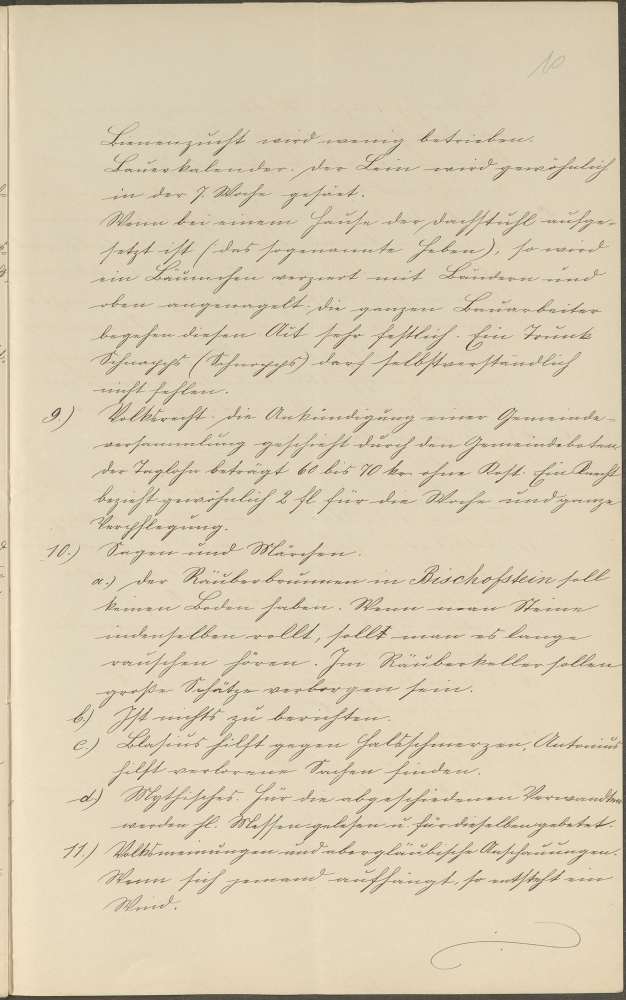 10
Bienenzucht wird wenig betrieben.
Bauerkalender. Der Lein wird gewöhnlich
in der 7. Woche gesäet.
Wenn bei einem Hause der Dachstuhl aufge-
setzt ist (das sogenannte Heben), so wird
ein Bäumchen verziert mit Bändern und
oben angenagelt; die ganzen Bauarbeiter
begehen diesen Akt sehr festlich. Ein Trunk
Schnapps (Schnapps) darf selbstverständlich
nicht fehlen.
9.) Volksrecht. Die Ankündigung einer Gemeinde-
versammlung geschieht durch den Gemeindeboten
Der Taglohn beträgt 60 bis 70 kr. ohne Kost. Ein Knecht
bezieht gewöhnlich 2 fl für die Woche und ganze
Verpflegung.
10.) Sagen und Märchen.
a.) Der Räuberbrunnen in Bischofstein soll
keinen Boden haben. Wenn man Steine
in denselben rollt, sollt man es lange
rauschen hören. Im Räuberkeller sollen
große Schätze verborgen sein.
b.) Ist nichts zu berichten.
c.) Blasius hilft gegen Halsschmerzen, Antonius
hilft verlorene Sachen finden.
d.) Mythisches. Für die abgeschiedenen Verwandten
werden hl. Messen gelesen u. für dieselben gebetet.
11.) Volksmeinungen und abergläubische Anschauungen.
Wenn sich jemand aufhängt, so entsteht ein
Wind.